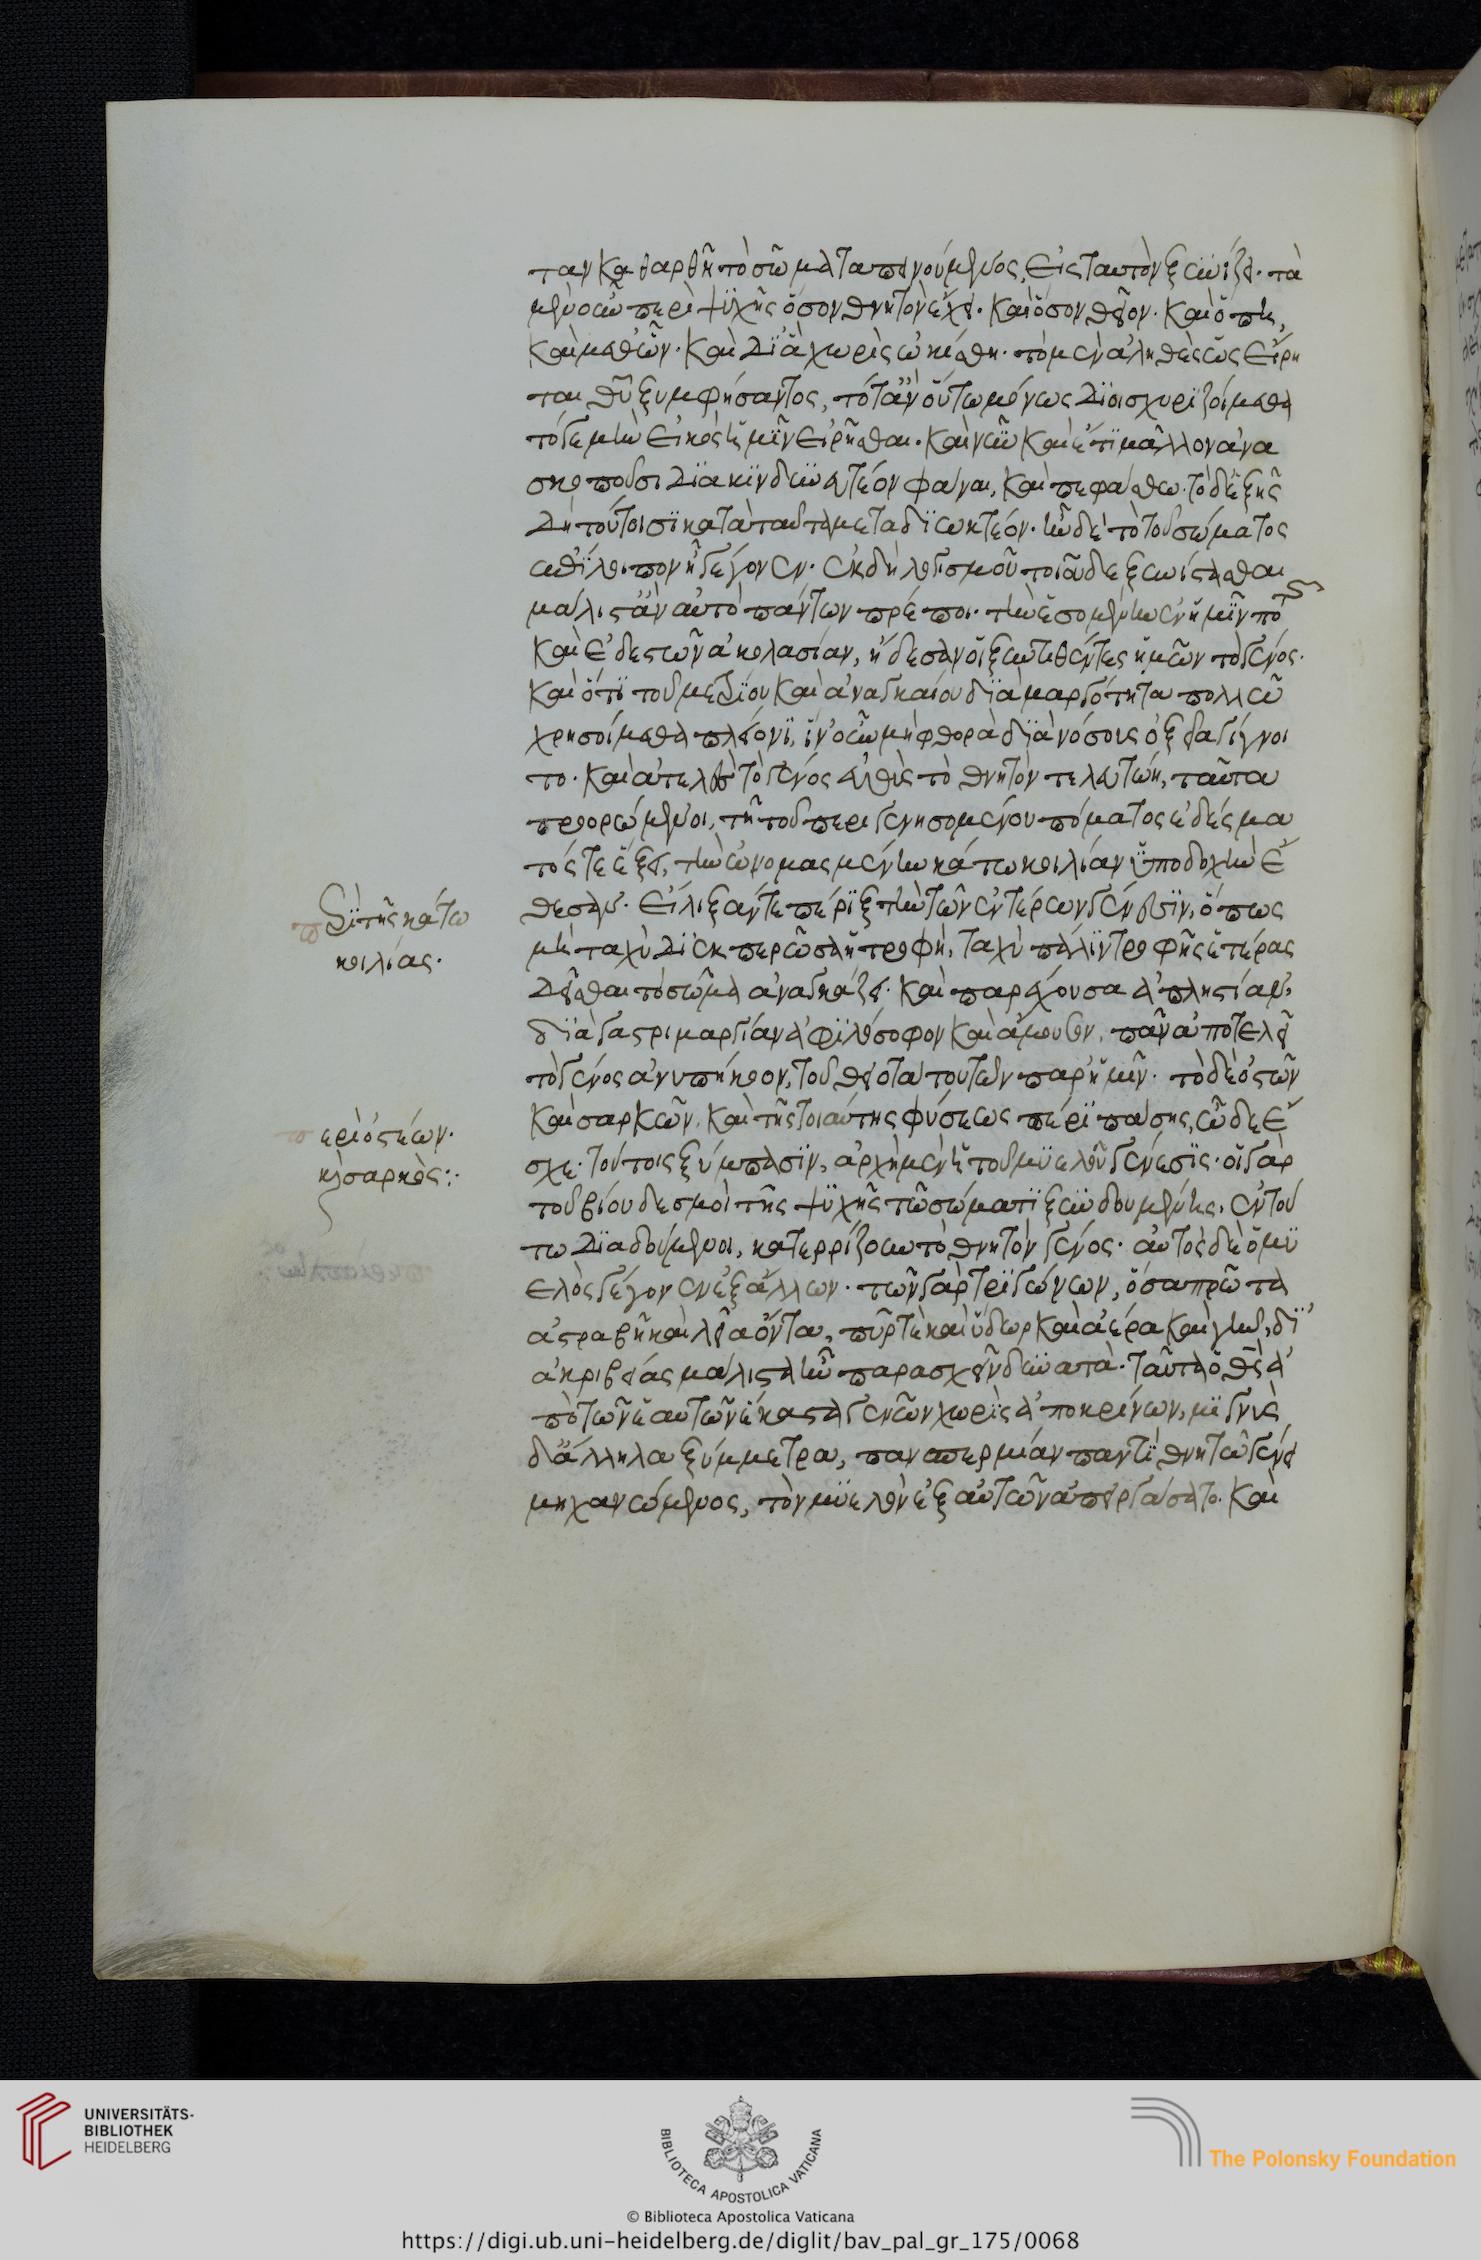 ταν καθαρθῇ τὸ σῶμα ταπεινούμενος, εἰς ταυτὸν ξυνίζει. τὰ
μὲν οὖν περὶ ψυχῆς ὅσον θνητὸν ἔχει. καὶ ὅσον θεῖον. καὶ ὅπη,
καὶ μεθ' ὧν. καὶ δι' ἃ χωρὶς ᾠκίσθη. τὸ μὲν ἀληθὲς ὡς εἴρη
ται θεοῦ ξυμφήσαντος, τότ' ἂν οὕτω μόνως διισχυριζοίμεθα
τόγε μὴν εἰκὸς ἡμῖν εἰρῆσθαι. καὶ νῦν καὶ ἔτι μᾶλλον ἀνα
σκοποῦσι διακινδυνευτέον φάναι, καὶ πεφάσθω. τὸ δ' ἑξῆς
δὴ τούτοισι κατὰ ταυτὰ μεταδιωκτέον. ἦν δὲ τὸ τοῦ σώματος
ἐπίλοιπον ᾗ γέγονεν. ἐκ δὴ λογισμοῦ τοιοῦδε ξυνίστασθαι
μάλιστ' ἂν αὐτὸ πάντων πρέποι. τὴν ἐσομένην ἐν ἡμῖν πο
καὶ ἐδεστῶν ἀκολασίαν, ᾔδεσαν οἱ ξυντιθέντες ἡμῶν τὸ γένος.
καὶ ὅτι τοῦ μετρίου καὶ ἀναγκαίου διὰ μαργότητα πολλῷ
χρησοίμεθα πλέονι, ἵν' οὖν μὴ φθορὰ διὰ νόσους ὀξεῖα γίγνοι
το. καὶ ἀτελὲς τὸ γένος εὐθὺς τὸ θνητὸν τελευτῴη, ταῦτα
προορώμενοι, τῇ τοῦ περιγενησομένου πόματος ἐδέσμα
τός τε ἕξει, τὴν ὠνομασμένην κάτω κοιλίαν ὑποδοχὴν ἔ
θεσαν. εἵλιξάν τε πέριξ τὴν τῶν ἐντέρων γένεσιν, ὅπως
μὴ ταχὺ διεκπερῶσα ἡ τροφὴ, ταχὺ πάλιν τροφῆς ἑτέρας
δεῖσθαι τὸ σῶμα ἀναγκάζει. καὶ παρέχουσα ἀπληστίαν,
διὰ γαστριμαργίαν ἀφιλόσοφον καὶ ἄμουσον, πᾶν ἀποτελεῖ
τὸ γένος ἀνυπήκοον, τοῦ θειοτάτου τῶν παρ' ἡμῖν. τὸ δὲ ὀστῶν
καὶ σαρκῶν, καὶ τῆς τοιαύτης φύσεως πέρι πάσης, ὧδε ἔ
σχε. τούτοις ξύμπασιν, ἀρχὴ μὲν ἡ τοῦ μυελοῦ γένεσις. οἱ γὰρ
τοῦ βίου δεσμοὶ τῆς ψυχῆς τῷ σώματι ξυνδουμένης, ἐν τού
τῳ διαδούμενοι, κατερρίζουν τὸ θνητὸν γένος. αὐτὸς δὲ ὁ μυ
ελὸς γέγονεν ἐξ ἄλλων. τῶν γὰρ τριγώνων, ὅσα πρῶτα
ἀστραβῆ καὶ λεῖα ὄντα, πῦρ τε καὶ ὕδωρ καὶ ἀέρα καὶ γῆν, δι'
ἀκριβείας μάλιστα ἦν παρασχεῖν δυνατὰ. ταῦτα ὁ θεὸς ἀ
πὸ τῶν ἑαυτῶν ἕκαστα γενῶν χωρὶς ἀποκρίνων, μιγνὺς
δ' ἀλλήλα ξύμμετρα, πανσπερμίαν παντὶ θνητῷ γένει
μηχανώμενος, τὸν μυελὸν ἐξ αὐτῶν ἀπειργάσατο. καὶ
περὶ τῆς κάτω
κοιλίας.
περὶ ὀστέων.
κ(αὶ) σαρκός:.
UNIVERSITÄTS-
BIBLIOTHEK
HEIDELBERG
BIBLIOTECA APOSTOLICA VATICANA
The Polonsky Foundation
© Biblioteca Apostolica Vaticana
https://digi.ub.uni-heidelberg.de/diglit/bav_pal_gr_175/0068